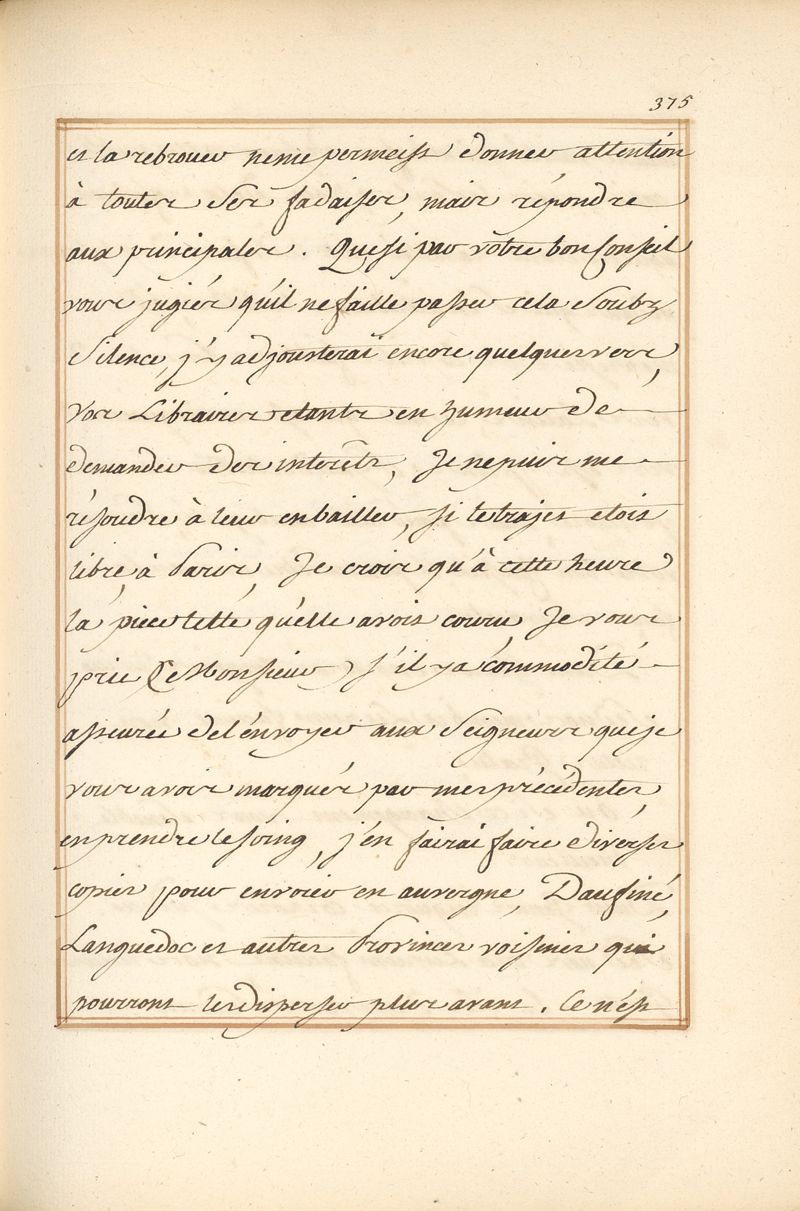 375
et la rebrouer ne me permeist donner attention
à toutes ses fadaises, mais répondre
aux principales. Que si par votre bon Conseil
vous jugiés qu'il ne faille passer cela soubz
silence, j'y adjousterai encore quelques vers,
Vos Libraires etants en humeur de
demander des interêts, Je ne puis me
résoudre à leur en bailler, si le trajet etoit
libre, à Paris, Je crois qu'à cette heure
la piece qu'elle avoit couru, Je vous
prie (Monsieur) s'il y a commodité
asseurée de l'énvoyer aux Seigneurs que je
vous avois marqués par mes précédentes,
en prendre le soing, j'en fairai faire diverses
copies pour envoier en auvergne, Daufiné,
Languedoc et autres Provinces voisines qui
pourront les disperser plus avant. Ce n'est